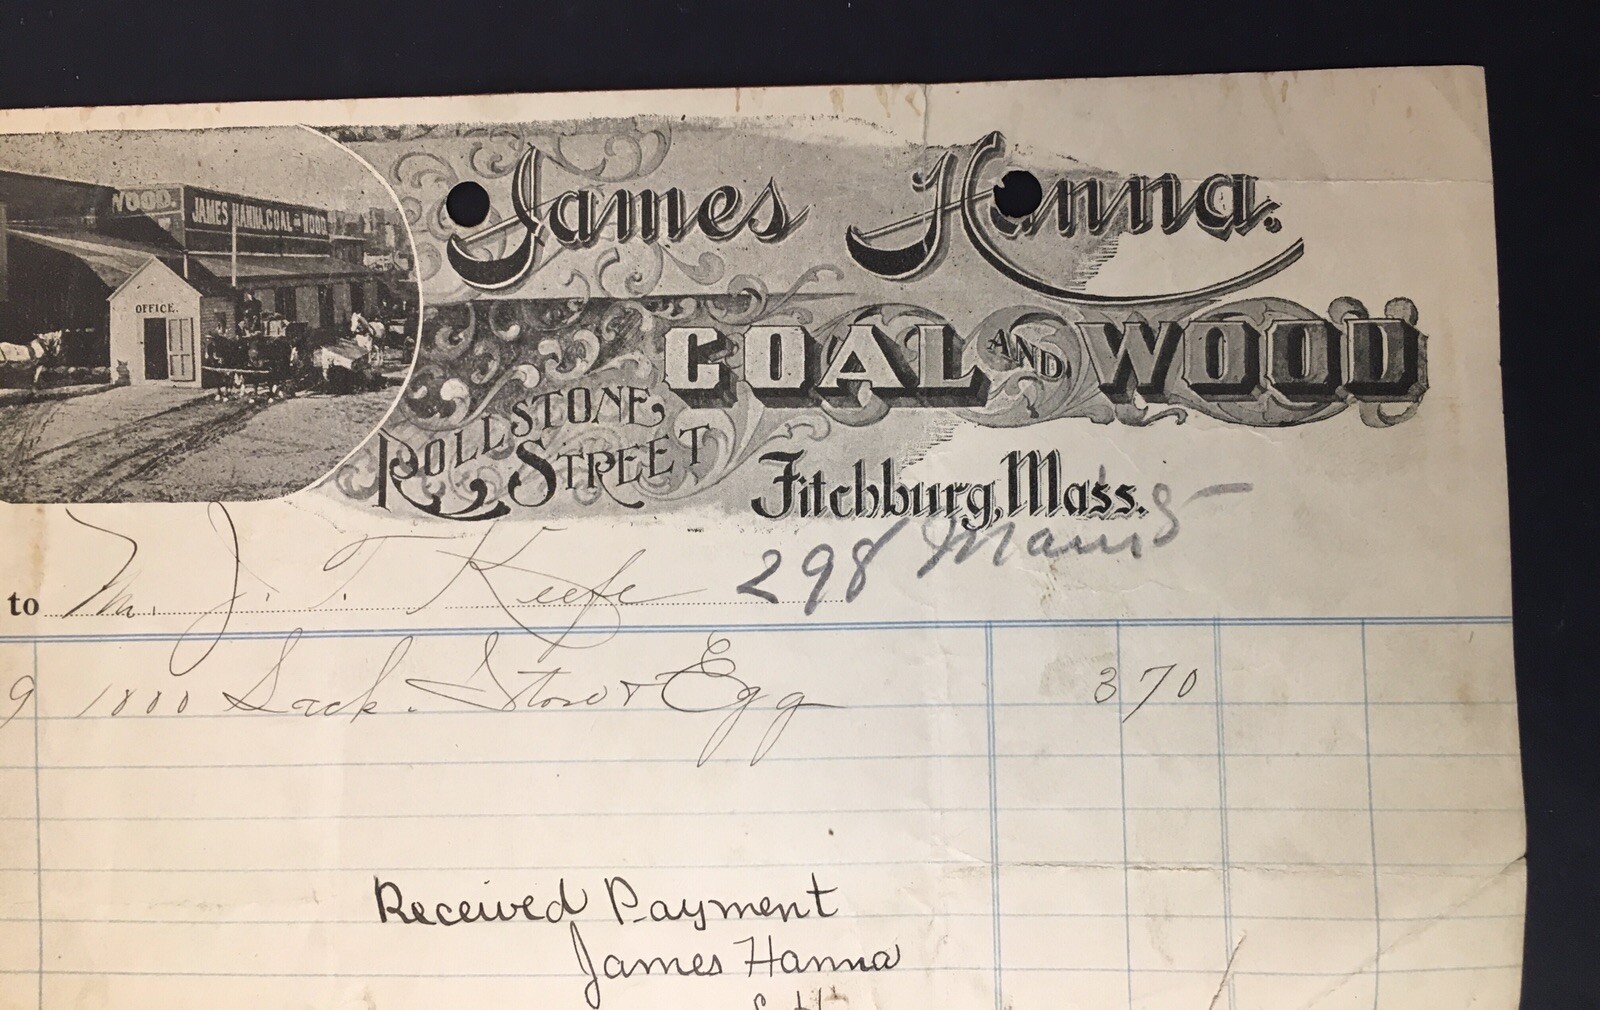 WOOD.
JAMES HANNA, COAL & WOOD
OFFICE.
James Hanna.
COAL AND WOOD
ROLLSTONE STREET
Fitchburg, Mass.
to M. J. T. Keefe 298 Main S
9 1000 Sack. Stove & Egg 3 70
Received Payment
James Hanna